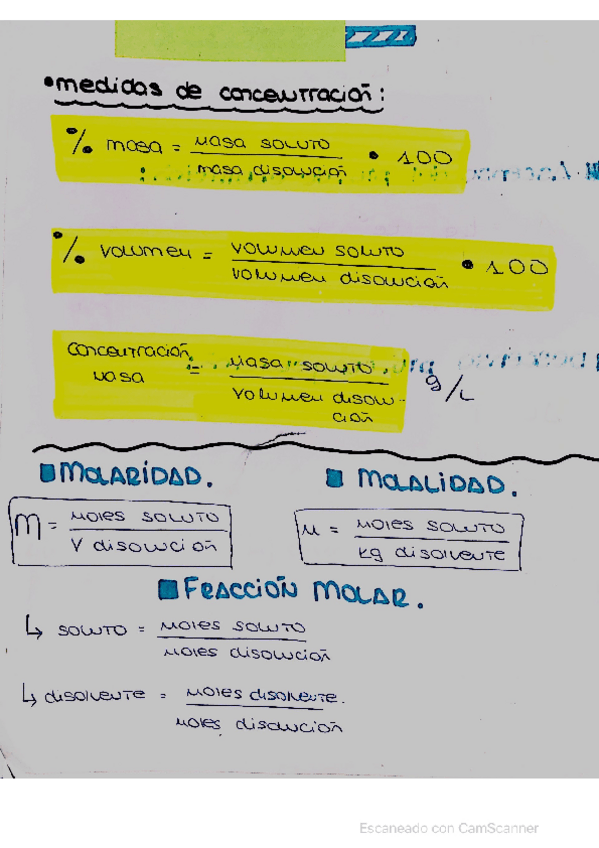 •medidas de concentración:
% masa = masa soluto / masa disolución • 100
% volumen = volumen soluto / volumen disolución • 100
concentración masa = masa soluto / volumen disolución g/L
MOLARIDAD.
M = moles soluto / V disolución
MOLALIDAD.
m = moles soluto / kg disolvente
FRACCIÓN MOLAR.
↳ soluto = moles soluto / moles disolución
↳ disolvente = moles disolvente. / moles disolución
Escaneado con CamScanner